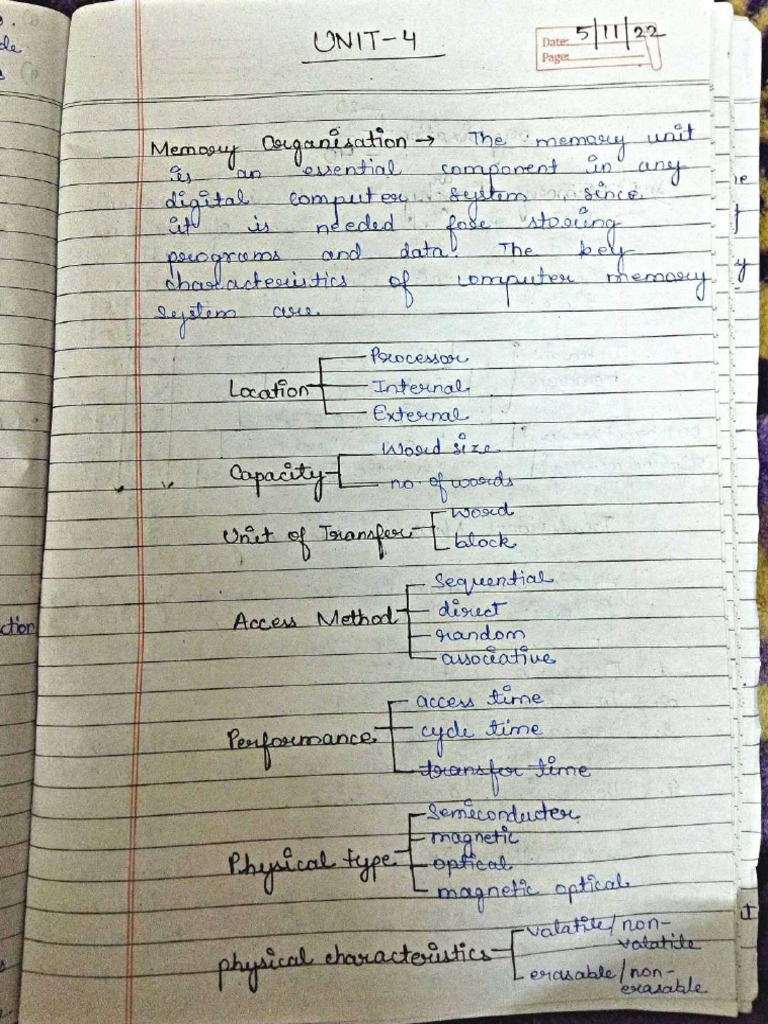 UNIT-4
Date: 5/11/22
Page:
Memory Organisation → The memory unit
is an essential component in any
digital computer system since
it is needed for storing
programs and data. The key
characteristics of computer memory
system are.
Location
Processor
Internal
External
Capacity
Word size
no. of words
Unit of Transfer
word
block
Access Method
Sequential
direct
random
associative
Performance
access time
cycle time
transfer time
Physical type
Semiconducter
magnetic
optical
magnetic optical
physical characteristics
valatile/non-
valatile
erasable/non-
erasable
ction